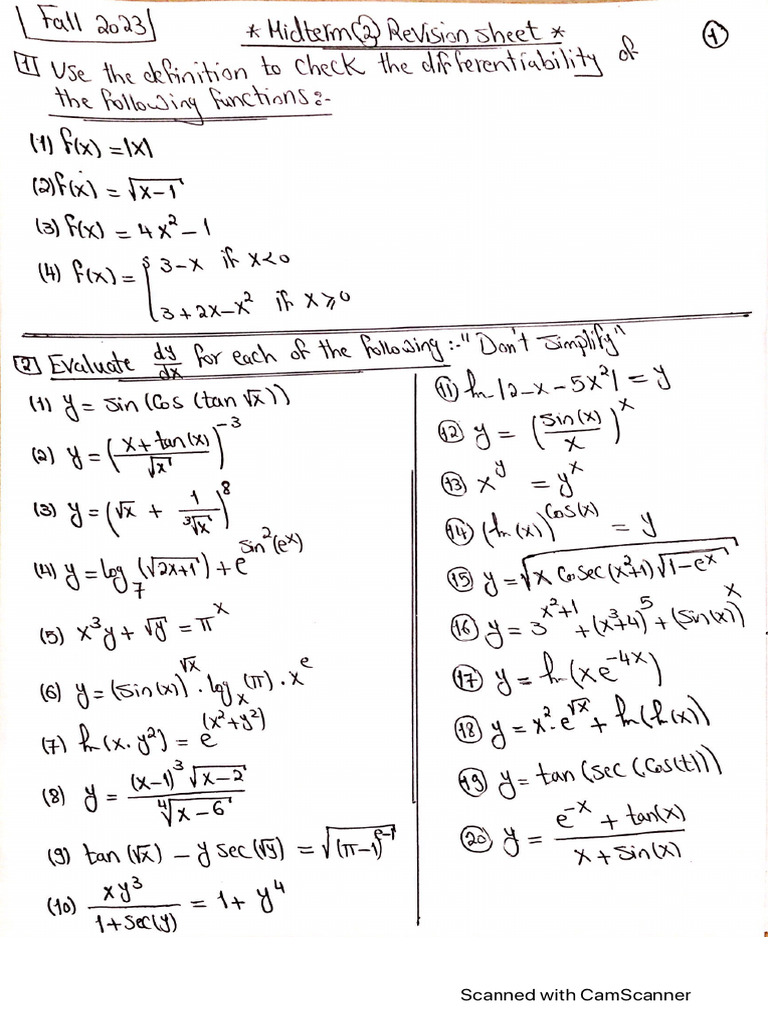 Fall 2023
* Midterm(2) Revision sheet *
1
[1] Use the definition to check the differentiability of
the following functions:-
(1) f(x) = |x|
(2) f(x) = √(x-1)
(3) f(x) = 4x² - 1
(4) f(x) = { 3-x if x<0
3+2x-x² if x⩾0
[2] Evaluate dy/dx for each of the following:- "Don't simplify"
(1) y = sin(cos(tan√x))
(2) y = ((x+tan(x))/√x)^-3
(3) y = (√x + 1/∛x)^8
(4) y = log_7(√(2x+1)) + e^(sin²(e^x))
(5) x³y + √y = π^x
(6) y = (sin(x))^√x · log_x(π) · x^e
(7) ln(x·y²) = e^(x²+y²)
(8) y = ((x-1)³ √(x-2))/∜(x-6)
(9) tan(√x) - y sec(√y) = √((π-1)^(e-1))
(10) xy³/(1+sec(y)) = 1 + y⁴
(11) ln|2-x-5x²| = y
(12) y = (sin(x)/x)^x
(13) x^y = y^x
(14) (ln(x))^cos(x) = y
(15) y = √(x cosec(x²+1) √(1-e^x))
(16) y = 3^(x²+1) + (x³+4)^5 + (sin(x))^x
(17) y = ln(xe^-4x)
(18) y = x²·e^√x + ln(ln(x))
(19) y = tan(sec(cos(t)))
(20) y = (e^-x + tan(x))/(x+sin(x))
Scanned with CamScanner